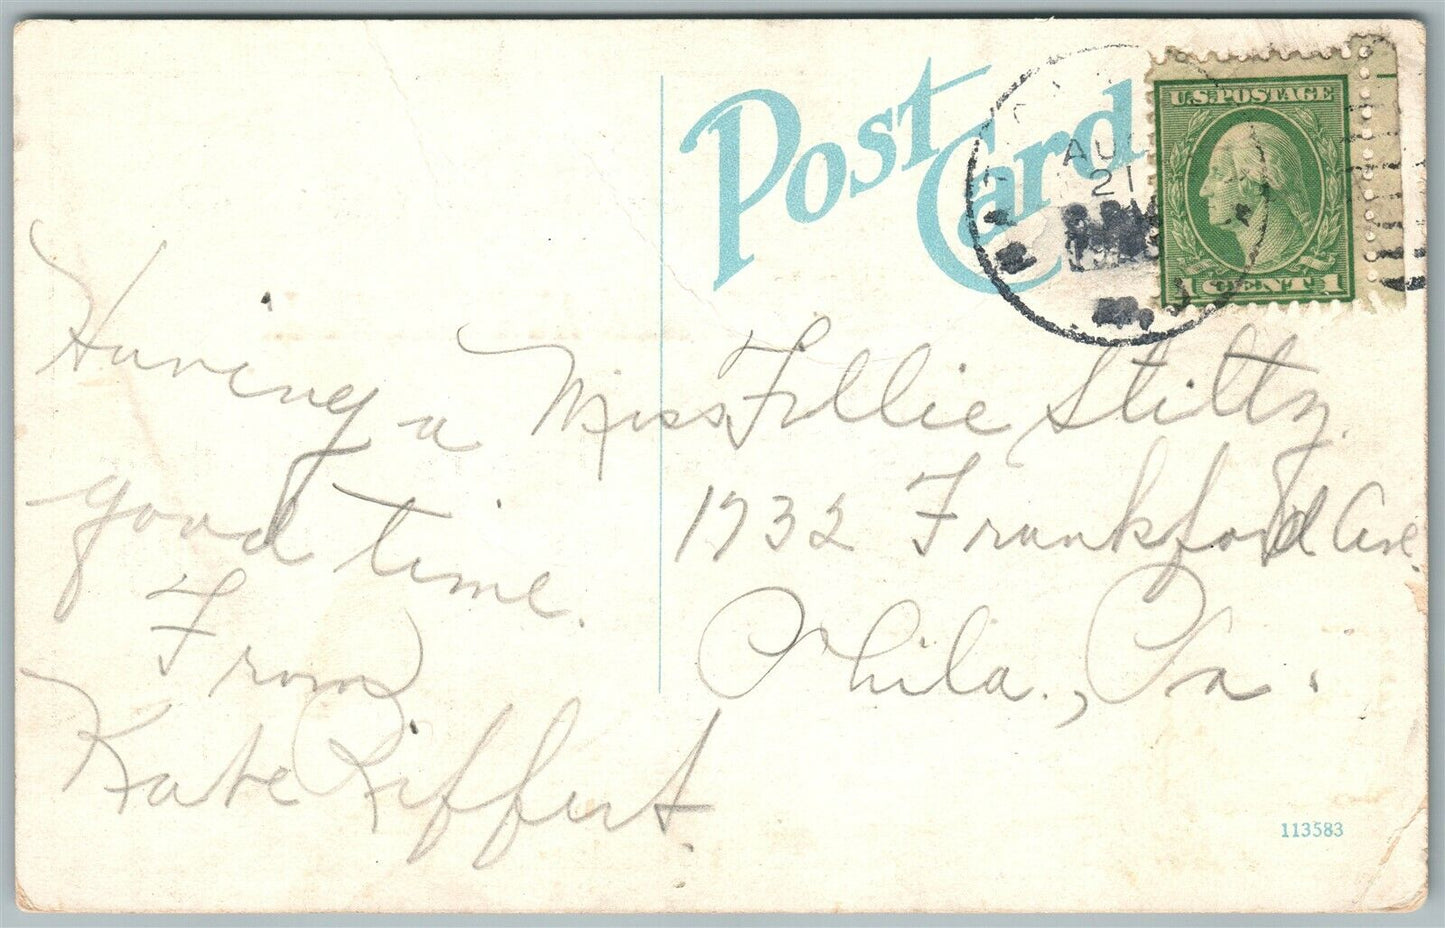 Post Card
U.S. POSTAGE
1 CENT 1
AUG
21
Having a
good time.
From
Kate Riffert.
Miss Tillie Stiltz.
1732 Frankford Ave
Phila., Pa.
113583